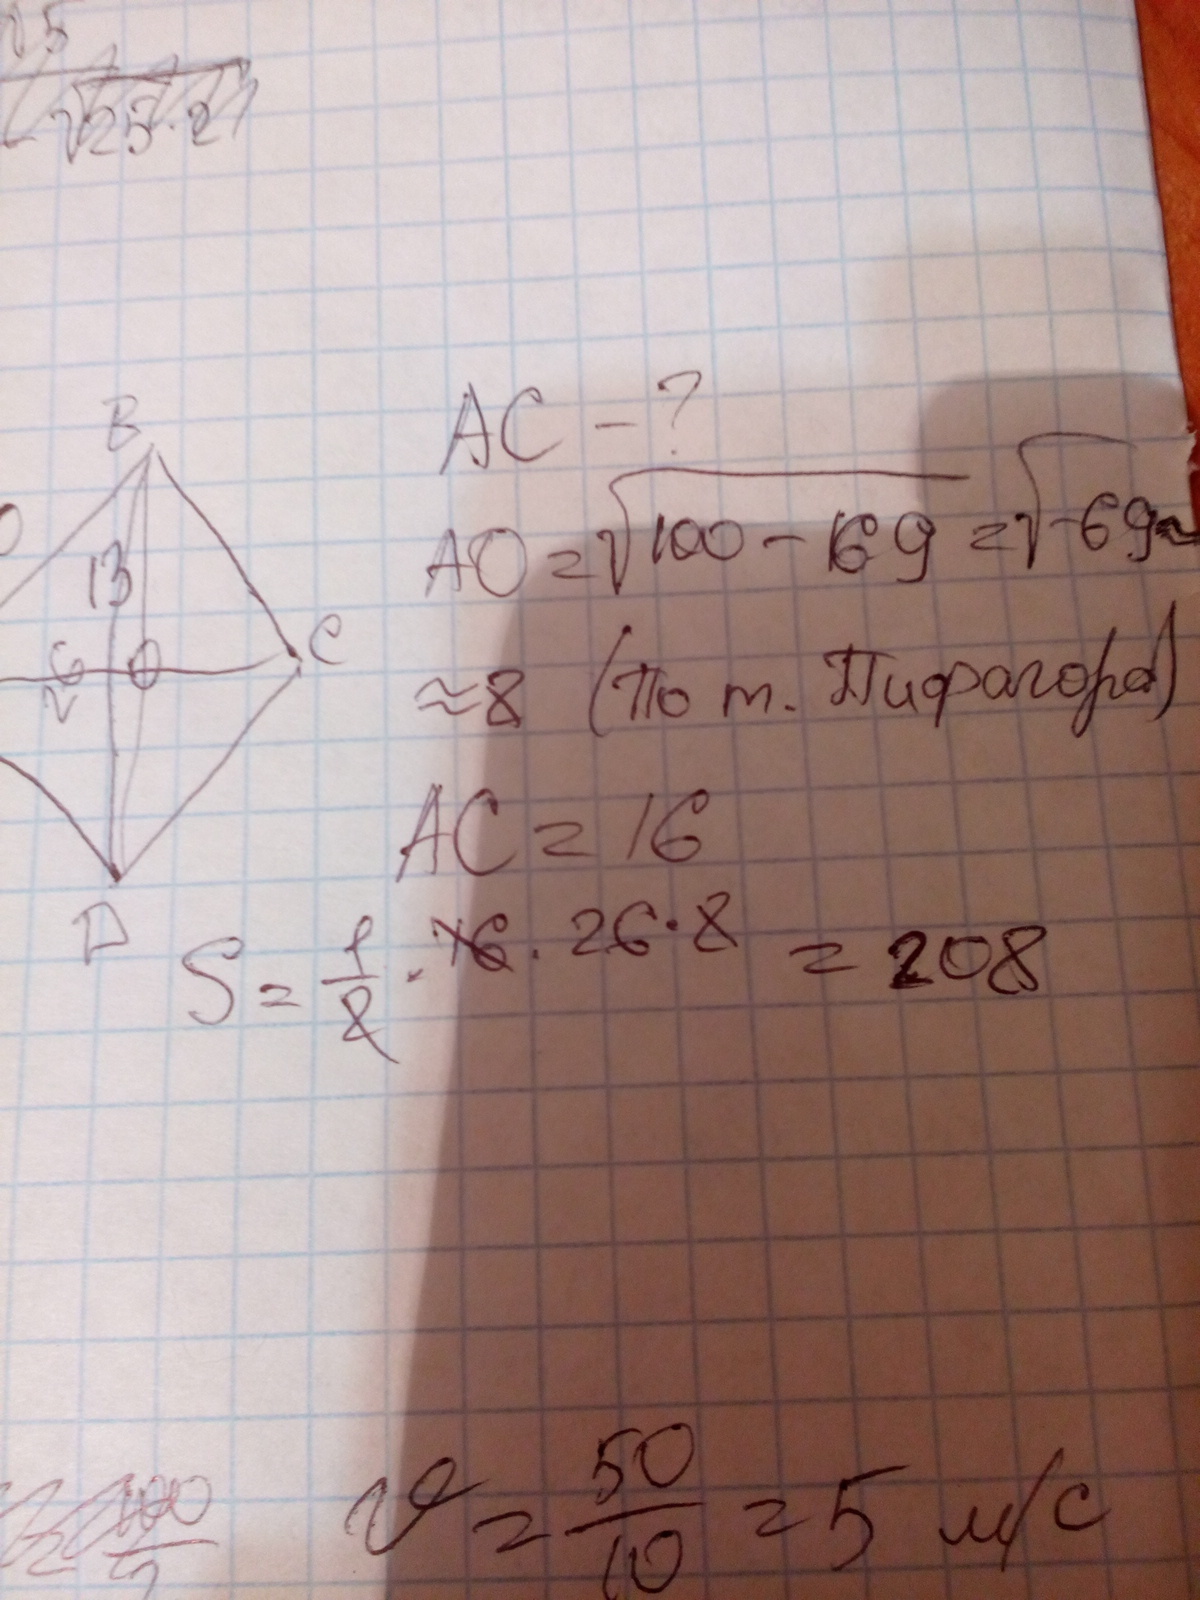 √25·2
B
AC - ?
13
AO = √100 - 169 = √-69 ≈
O
C
≈ 8 (По т. Пифагора)
AC = 16
D
S = 1/2 · 16 · 26 · 8 = 208
100
v = 50/10 = 5 м/с